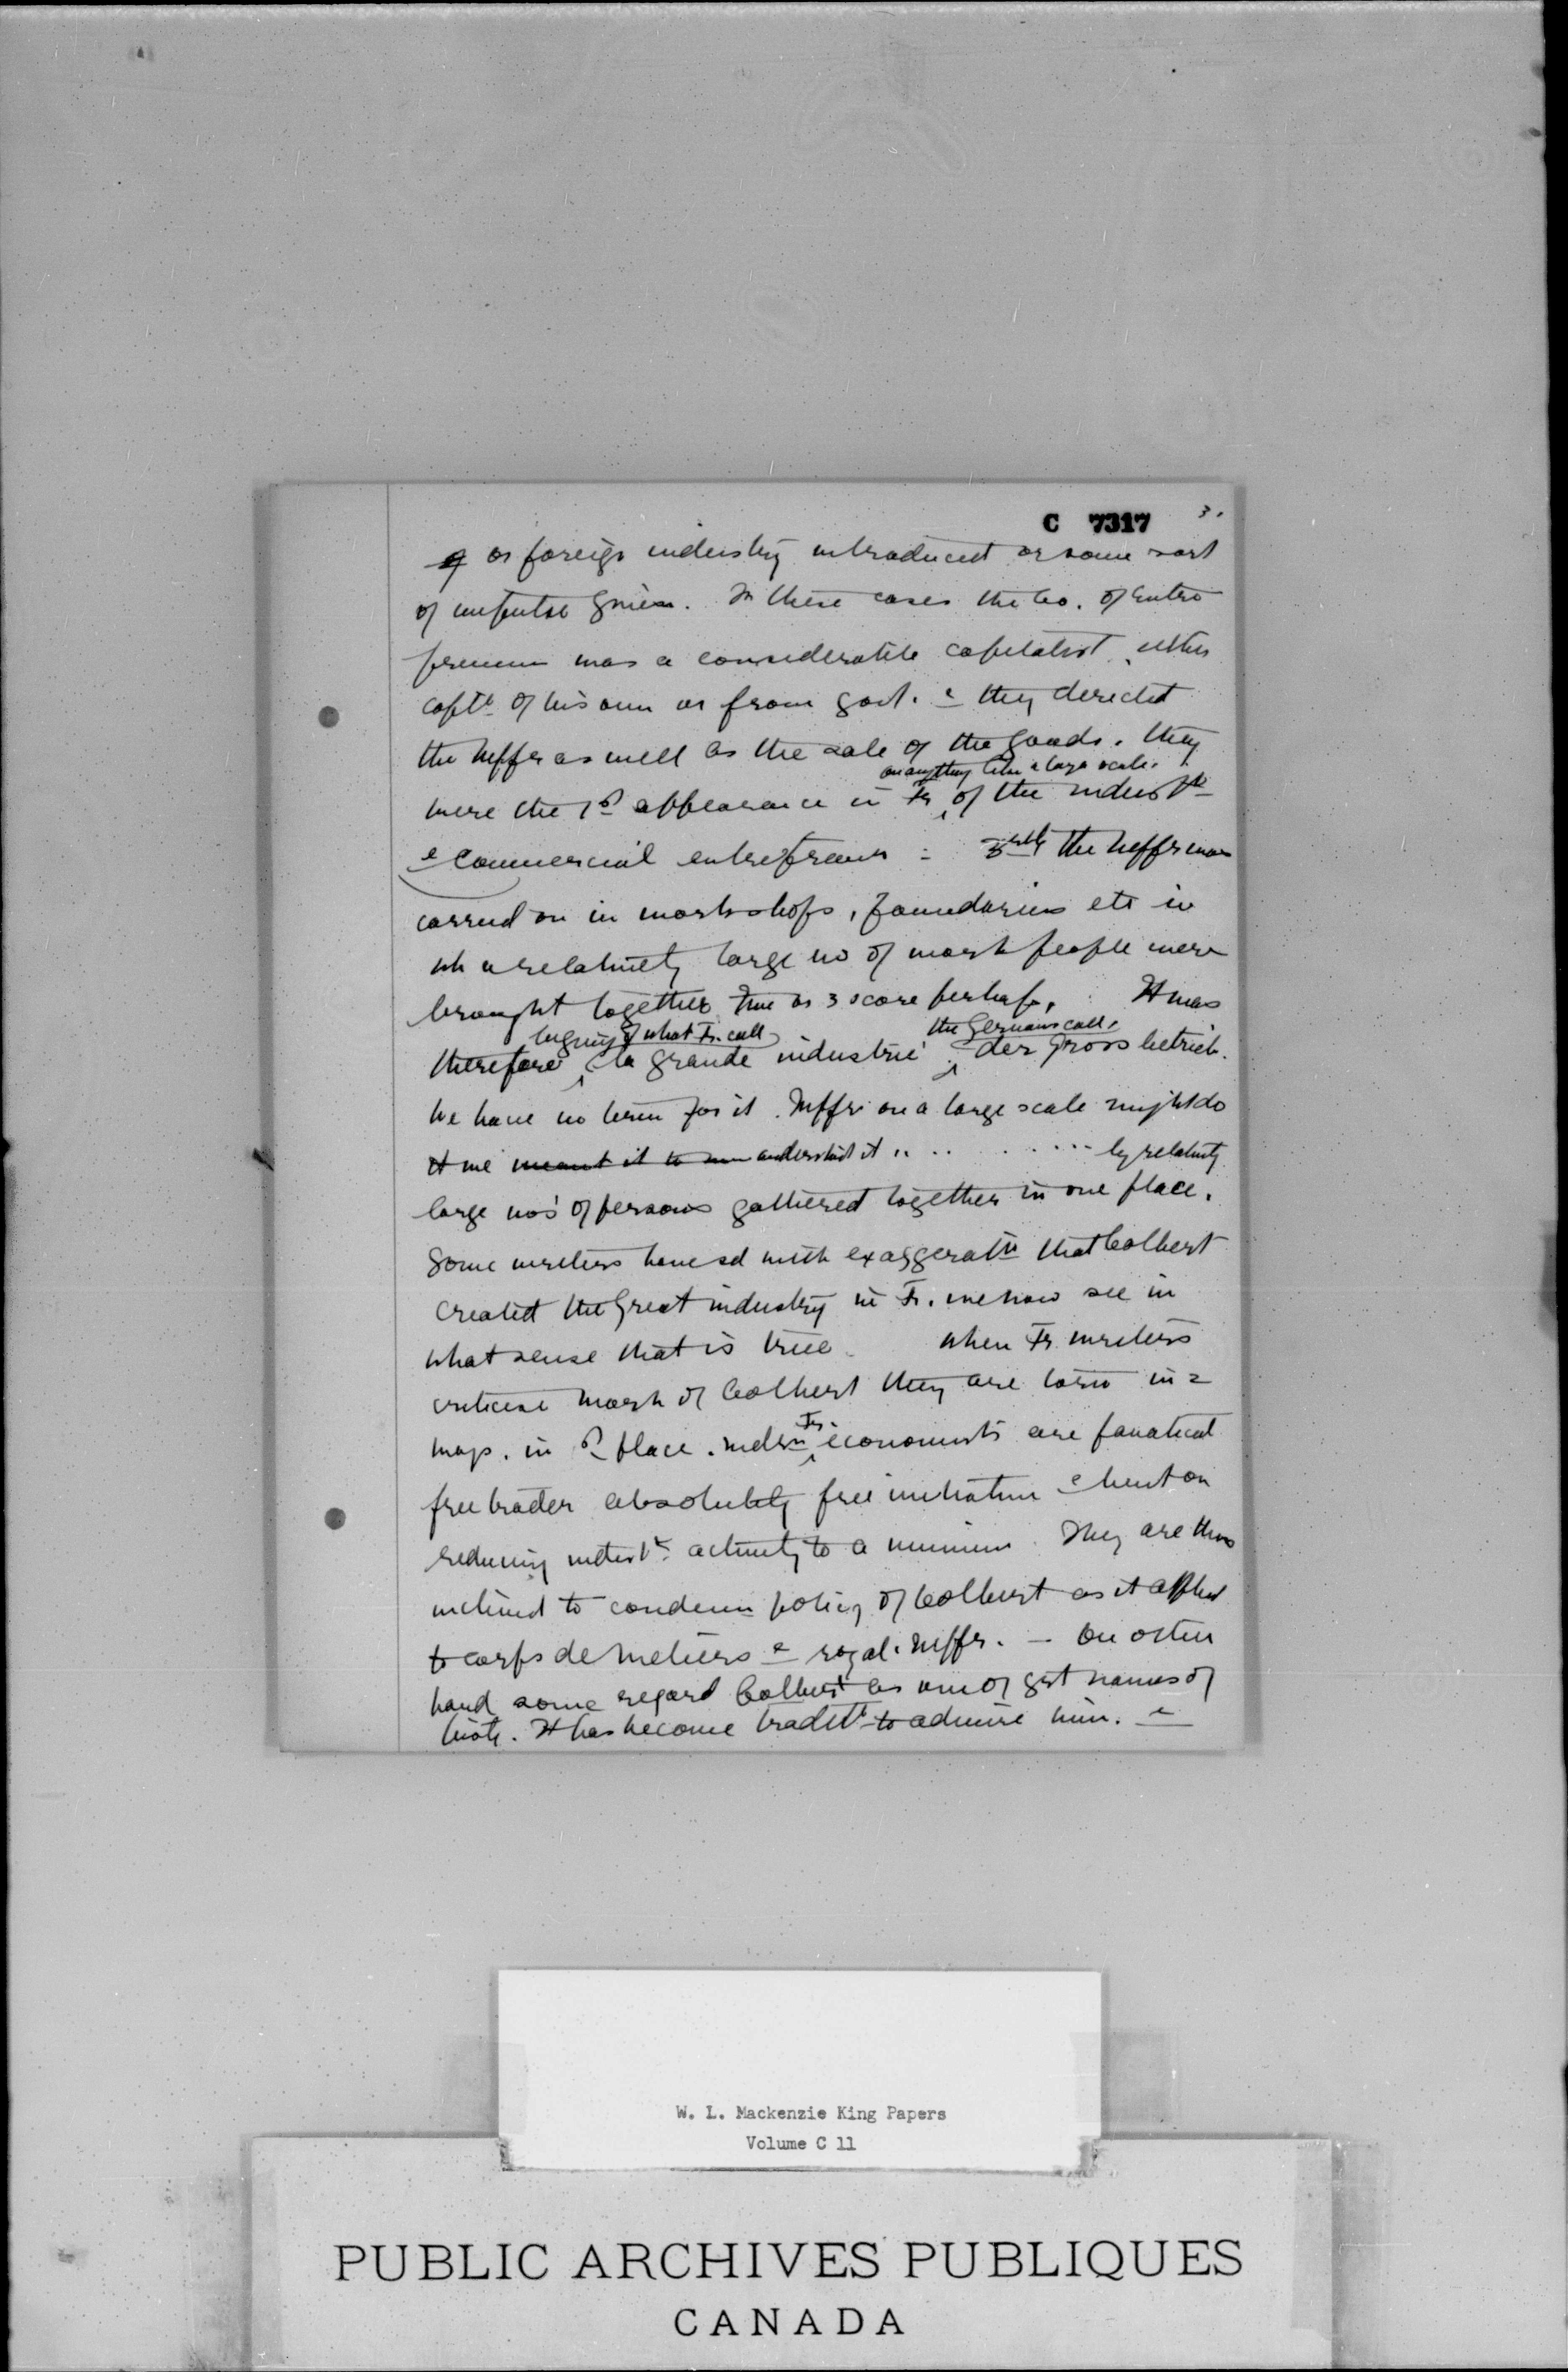 C 7317 3.
or foreign industry introduced or some sort
of impulse given. In these cases the Co. of Entre
preneur was a considerable capitalist, either
captl of his own or from govt. & they directed
the mffr as well as the sale of the goods. they
on anything like a large scale.
were the 1st appearance in Fr of the industl
& commercial entrepreneur : 3rdly the mffr was
carried on in workshops, foundaries etc in
wh a relatively large no of work people were
brought together two or 3 score perhaps, It was
begin'g of what Fr. call the Germans call,
therefore la grande industrie der gross betrieb.
We have no term for it. Mffr on a large scale might do
if we meant it to understand it by relatively
large nos of persons gathered together in one place.
Some writers have sd with exaggeratn that Colbert
created the Great industry in Fr. we now see in
what sense that is true. when Fr. writers
criticise work of Colbert they are torn in 2
ways. in 1st place. modern Fr. economists are fanatical
free trader absolutely free initiative & bent on
reducing activity to a minimum. They are thus
inclined to condemn policy of Colbert as it applied
to corps de metiers & royal. Mffr. — On other
hand some regard Colbert as one of gst names of
hist. It has become traditl to admire him. &
W. L. Mackenzie King Papers
Volume C 11
PUBLIC ARCHIVES PUBLIQUES
CANADA